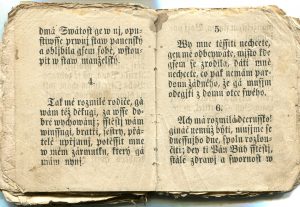 dmá Swátost ge w nj, opu-
stiwsse prwnj staw panenský
a obljbila gsem sobe, wstou-
pit w staw manželský.
4.
Tak mé rozmilé rodiče, gá
wám též děkugi, za wsse do-
bré wychowánj; sstěstj wám
winssugi, bratřj, sestry, přá-
telé vpřjmnj, potěsste mne
w mém zármutku, který gá
mám nynj.
5.
Wy mne těssiti nechcete,
gen mé odbywate, místo kde
gsem se zrodila, dáti mně
nechcete, co pak nemám pár-
donu žádného, že gá musjm
odegjti z domu otce swého.
6.
Ach má rozmilá dcerussko!
ginač nemuž býti, musjme se
dnessnjho dne, spolu rozlou-
čiti; dey ti Pán Bůh sstěstj,
stálé zdrawj a swornost w